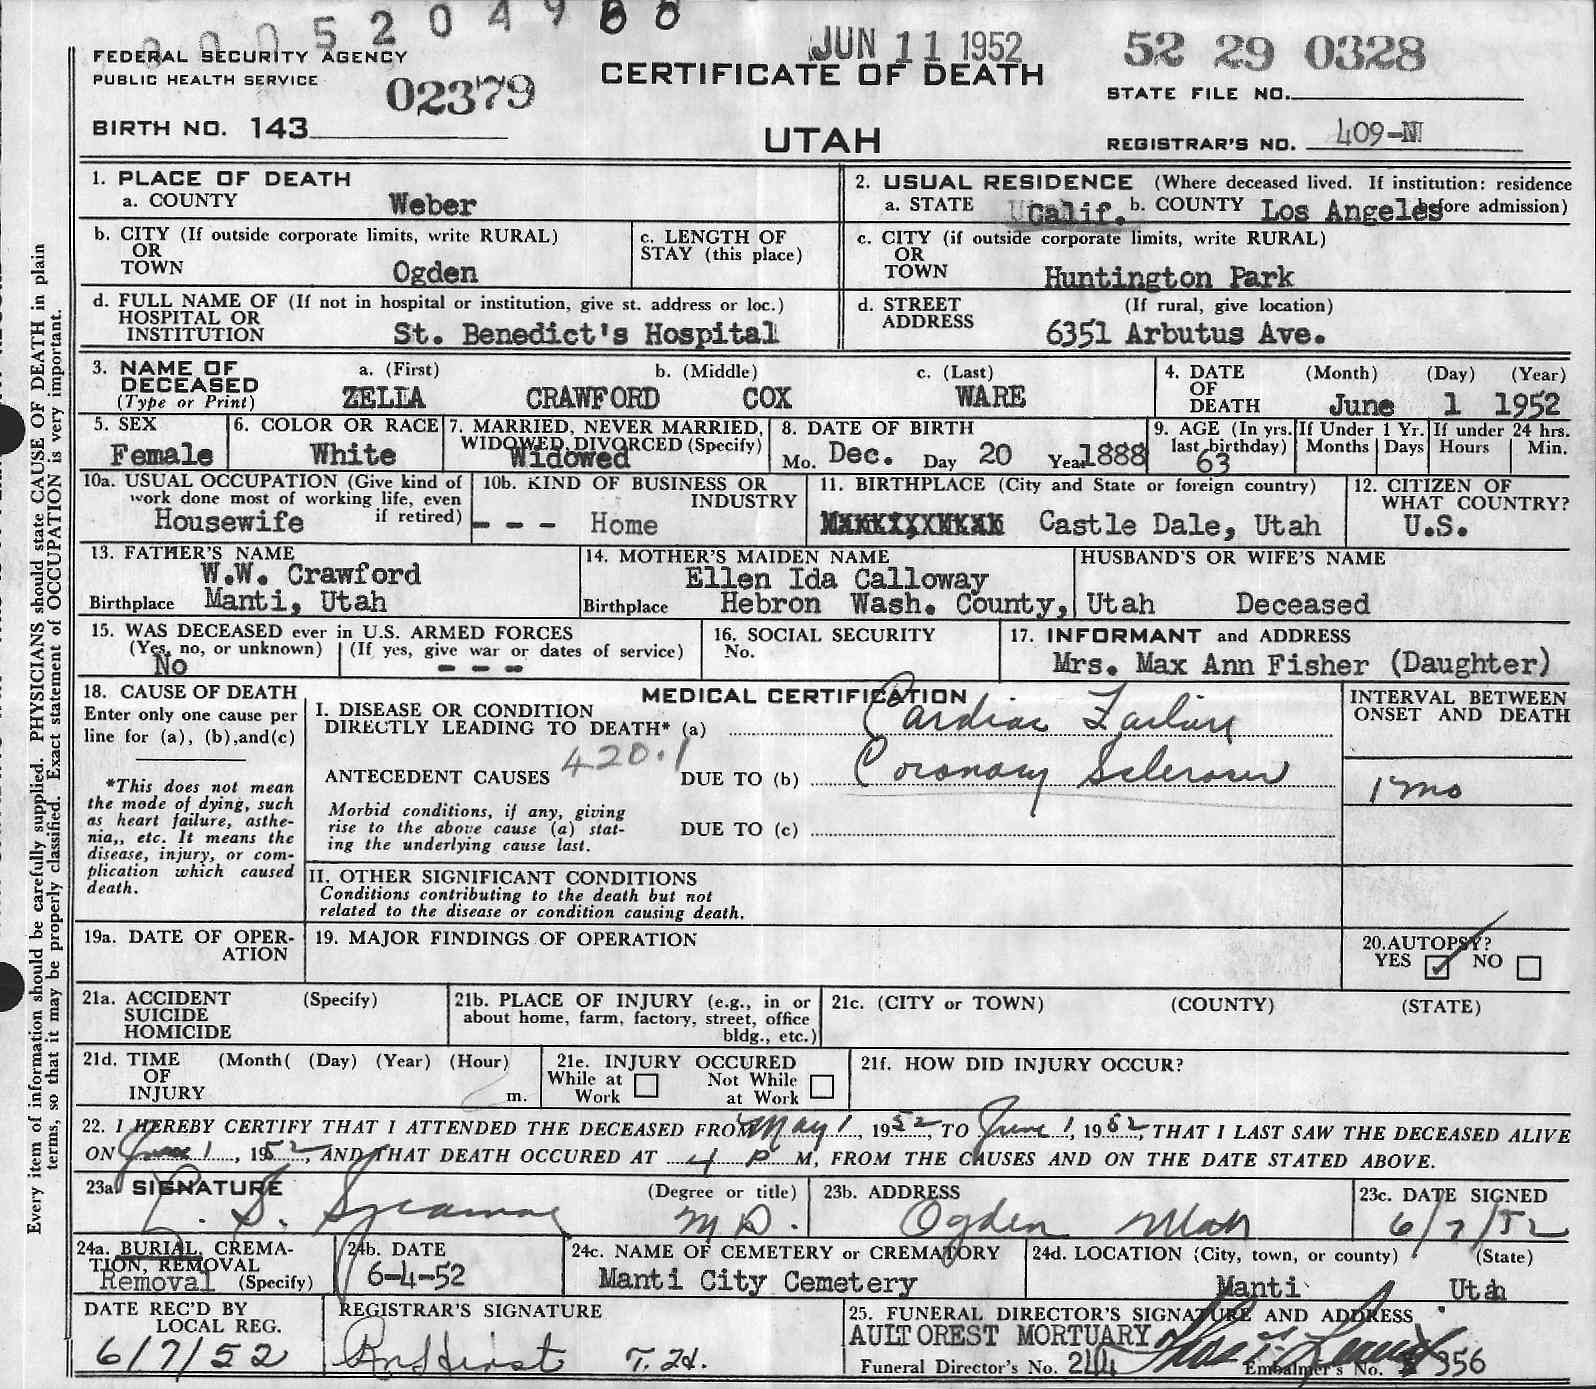 0005204988
JUN 11 1952
52 29 0328
FEDERAL SECURITY AGENCY
PUBLIC HEALTH SERVICE
02379
CERTIFICATE OF DEATH
STATE FILE NO.
BIRTH NO. 143
UTAH
REGISTRAR'S NO. 409-N
Every item of information should be carefully supplied. PHYSICIANS should state CAUSE OF DEATH in plain
terms, so that it may be properly classified. Exact statement of OCCUPATION is very important.
1. PLACE OF DEATH
a. COUNTY Weber
2. USUAL RESIDENCE (Where deceased lived. If institution: residence
before admission)
a. STATE Calif. b. COUNTY Los Angeles
b. CITY (If outside corporate limits, write RURAL)
OR
TOWN Ogden
c. LENGTH OF
STAY (this place)
c. CITY (if outside corporate limits, write RURAL)
OR
TOWN Huntington Park
d. FULL NAME OF (If not in hospital or institution, give st. address or loc.)
HOSPITAL OR
INSTITUTION St. Benedict's Hospital
d. STREET (If rural, give location)
ADDRESS 6351 Arbutus Ave.
3. NAME OF a. (First) b. (Middle) c. (Last)
DECEASED
(Type or Print) ZELLA CRAWFORD COX WARE
4. DATE (Month) (Day) (Year)
OF
DEATH June 1 1952
5. SEX
Female
6. COLOR OR RACE
White
7. MARRIED, NEVER MARRIED,
WIDOWED, DIVORCED (Specify)
Widowed
8. DATE OF BIRTH
Mo. Dec. Day 20 Year 1888
9. AGE (In yrs.
last birthday)
63
If Under 1 Yr.
Months Days
If under 24 hrs.
Hours Min.
10a. USUAL OCCUPATION (Give kind of
work done most of working life, even
if retired)
Housewife
10b. KIND OF BUSINESS OR
INDUSTRY
--- Home
11. BIRTHPLACE (City and State or foreign country)
Castle Dale, Utah
12. CITIZEN OF
WHAT COUNTRY?
U.S.
13. FATHER'S NAME
W.W. Crawford
Birthplace Manti, Utah
14. MOTHER'S MAIDEN NAME
Ellen Ida Calloway
Birthplace Hebron Wash. County, Utah
HUSBAND'S OR WIFE'S NAME
Deceased
15. WAS DECEASED ever in U.S. ARMED FORCES
(Yes, no, or unknown) (If yes, give war or dates of service)
No ---
16. SOCIAL SECURITY
No.
17. INFORMANT and ADDRESS
Mrs. Max Ann Fisher (Daughter)
18. CAUSE OF DEATH
Enter only one cause per
line for (a), (b),and(c)
*This does not mean
the mode of dying, such
as heart failure, asthe-
nia,, etc. It means the
disease, injury, or com-
plication which caused
death.
MEDICAL CERTIFICATION
I. DISEASE OR CONDITION
DIRECTLY LEADING TO DEATH* (a) Cardiac Failure
420.1
ANTECEDENT CAUSES DUE TO (b) Coronary Sclerosis
Morbid conditions, if any, giving
rise to the above cause (a) stat-
ing the underlying cause last.
DUE TO (c)
II. OTHER SIGNIFICANT CONDITIONS
Conditions contributing to the death but not
related to the disease or condition causing death.
INTERVAL BETWEEN
ONSET AND DEATH
1 mo
19a. DATE OF OPER-
ATION
19. MAJOR FINDINGS OF OPERATION
20. AUTOPSY?
YES NO
21a. ACCIDENT (Specify)
SUICIDE
HOMICIDE
21b. PLACE OF INJURY (e.g., in or
about home, farm, factory, street, office
bldg., etc.)
21c. (CITY or TOWN) (COUNTY) (STATE)
21d. TIME (Month( (Day) (Year) (Hour)
OF
INJURY m.
21e. INJURY OCCURED
While at Work Not While at Work
21f. HOW DID INJURY OCCUR?
22. I HEREBY CERTIFY THAT I ATTENDED THE DECEASED FROM May 1, 1952, TO June 1, 1952, THAT I LAST SAW THE DECEASED ALIVE
ON June 1, 1952, AND THAT DEATH OCCURED AT 4 P M, FROM THE CAUSES AND ON THE DATE STATED ABOVE.
23a. SIGNATURE (Degree or title)
M D.
23b. ADDRESS
Ogden Utah
23c. DATE SIGNED
6/7/52
24a. BURIAL, CREMA-
TION, REMOVAL
Removal (Specify)
24b. DATE
6-4-52
24c. NAME OF CEMETERY or CREMATORY
Manti City Cemetery
24d. LOCATION (City, town, or county) (State)
Manti Utah
DATE REC'D BY
LOCAL REG.
6/7/52
REGISTRAR'S SIGNATURE
25. FUNERAL DIRECTOR'S SIGNATURE AND ADDRESS
AULTOREST MORTUARY
Funeral Director's No. Embalmer's No. 356